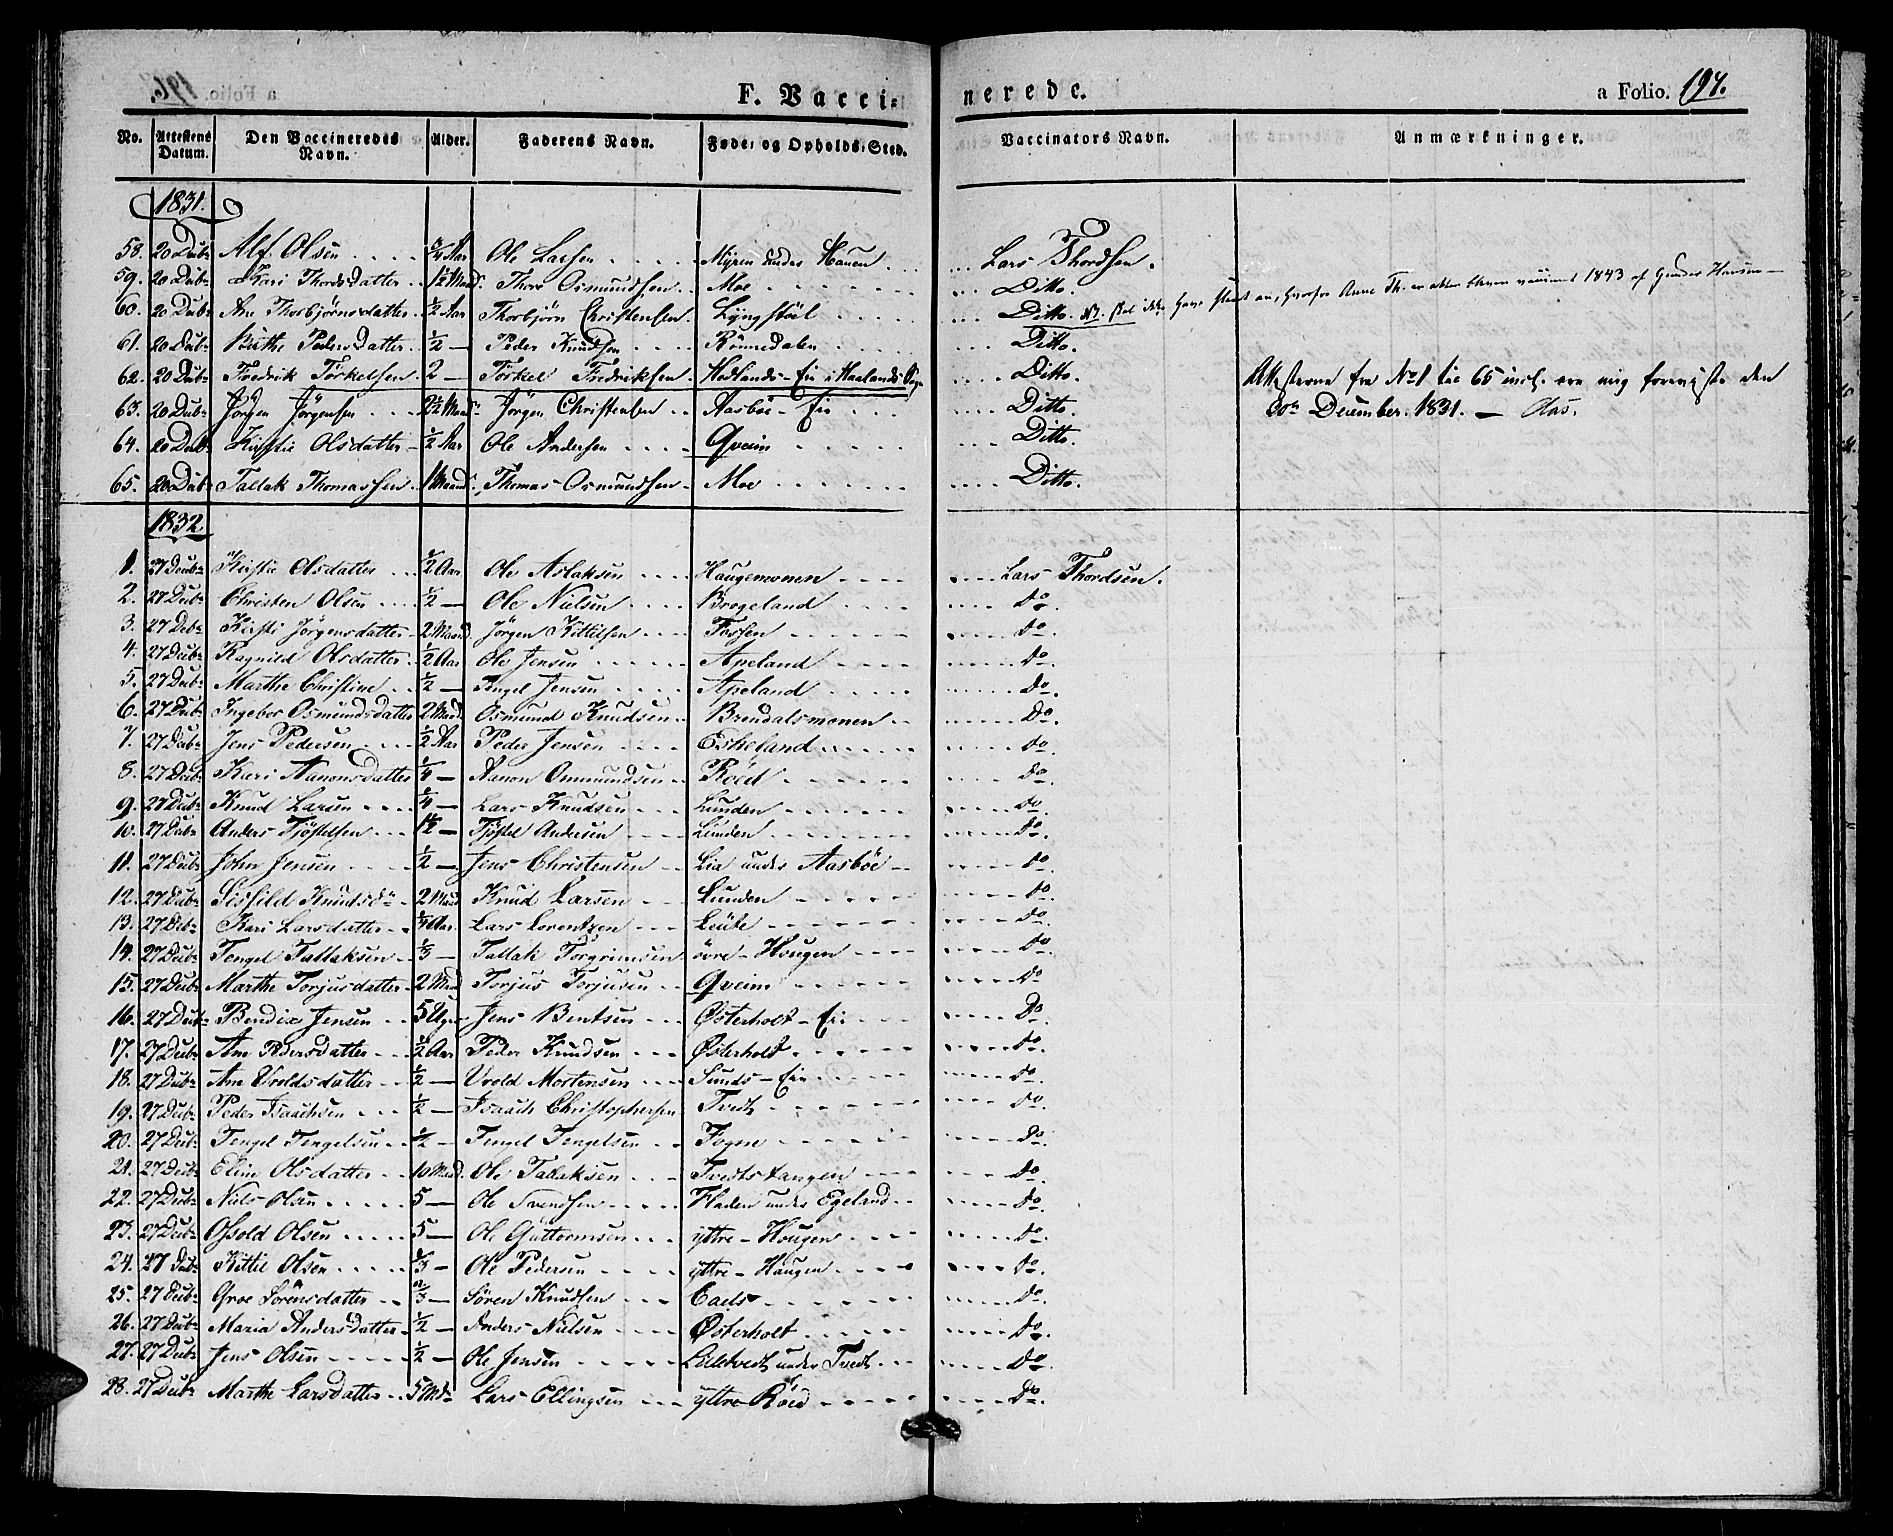 F. Vaccinerede. a Folio. 197.
No. Attestens Datum. Den Vaccineredes Navn. Alder. Faderens Navn. Føde- og Opholds-Sted. Vaccinators Navn. Anmærkninger.
1831.
58. 20 Decbr Alf Olsen 3/4 Aar Ole Larsen Myren under Hauen Lars Thordsen.
59. 20 Decbr Kari Thordsdatter Thore Osmundsen Moe Ditto.
60. 20 Decbr Ane Thorbjörnsdatter 1/2 Aar Thorbjörn Christensen Lyngstöl Ditto. NB. skal ikke have slaaet an, hvorfor Anne Th. er atter bleven vaccineret 1843 af Gunder Hansen
61. 20 Decbr Birthe Pedersdatter 1/2 — Peder Knudsen Rönnedalen Ditto.
62. 20 Decbr Fredrik Törkelsen 2 — Törkel Fredriksen Hedlands-Eie i Haalands Sogn Ditto. Attesterne fra No 1 til 65 incl. ere mig foreviiste den
63. 20 Decbr Jörgen Jörgensen 2 1/2 Maand Jörgen Christensen Aasböe-Eie Ditto. December 1831. —
64. 20 Decbr Kirstie Olsdatter 1/2 Aar Ole Andersen Qveim Ditto.
65. 20 Decbr Tallak Thomassen Maand. Thomas Osmundsen Moe Ditto.
1832
1. 27 Decbr Kirstie Olsdatter 1/2 Aar Ole Aslaksen Haugemonen Lars Thordsen.
2. 27 Decbr Christen Olsen 1/2 — Ole Nielsen Brogeland Do.
3. 27 Decbr Kirsti Jörgensdatter 2 Maand. Jörgen Kittilsen Fossen Do.
4. 27 Decbr Ragnild Olsdatter 1/2 Aar Ole Jensen Apeland Do.
5. 27 Decbr Marthe Christine 1/2 — Tengel Jensen Apeland Do.
6. 27 Decbr Ingebor Osmundsdatter 2 Maand Osmund Knudsen Brendalsmonen Do.
7. 27 Decbr Jens Pedersen 1/2 Aar Peder Jensen Eskeland Do.
8. 27 Decbr Kari Aanonsdatter 1/4 — Aanon Ommundsen Röed Do.
9. 27 Decbr Knud Larsen 1/4 — Lars Knudsen Lunden Do.
10. 27 Decbr Anders Tjöstelsen 1 1/2 — Tjöstel Andersen Lunden Do.
11. 27 Decbr John Jensen 1/2 — Jens Christensen Lia under Aasböe Do.
12. 27 Decbr Sissild Knudsdr 2 Maand Knud Larsen Lunden Do.
13. 27 Decbr Kari Larsdatter 3/4 Aar. Lars Lorentzen Leite Do.
14. 27 Decbr Tengel Tallaksen 1/3 — Tallak Torgrimsen övre-Hougen Do.
15. 27 Decbr Marthe Torjusdatter 2 Maand Torjus Torjusen Qveim Do
16. 27 Decbr Bendix Jensen 5 Uger Jens Bentsen Østerholt-Eie Do
17. 27 Decbr Ane Pedersdatter 1/2 Aar Peder Knudsen Østerholt Do.
18. 27 Decbr Ane Uvoldsdatter 1/2 — Uvold Mortensen Sunds-Eie Do.
19. 27 Decbr Peder Isaachsen 1/2 — Isaach Christophersen Tvedt Do.
20. 27 Decbr Tengel Tengelsen 1/2 — Tengel Tengelsen Fogne Do.
21. 27 Decbr Eline Olsdatter 10 Maand. Ole Tallaksen Tvedtstangen Do.
22. 27 Decbr Niels Olsen 5 — Ole Svendsen Fladen under Egeland Do.
23. 27 Decbr Ossold Olsen 5 — Ole Guttormsen yttre-Hougen Do.
24. 27 Decbr Kittil Olsen 1/3 — Ole Pedersen yttre-Haugen Do.
25. 27 Decbr Groe Sörensdatter 2/3 — Sören Knudsen Do.
26. 27 Decbr Maria Andersdatter 1/2 — Anders Nielsen Østerholt Do.
27. 27 Decbr Jens Olsen 1/2 — Ole Jensen Lilletvedt under Tvedt Do.
28. 27 Decbr Marthe Larsdatter 5 Mdr Lars Ellingsen yttre Röed Do.